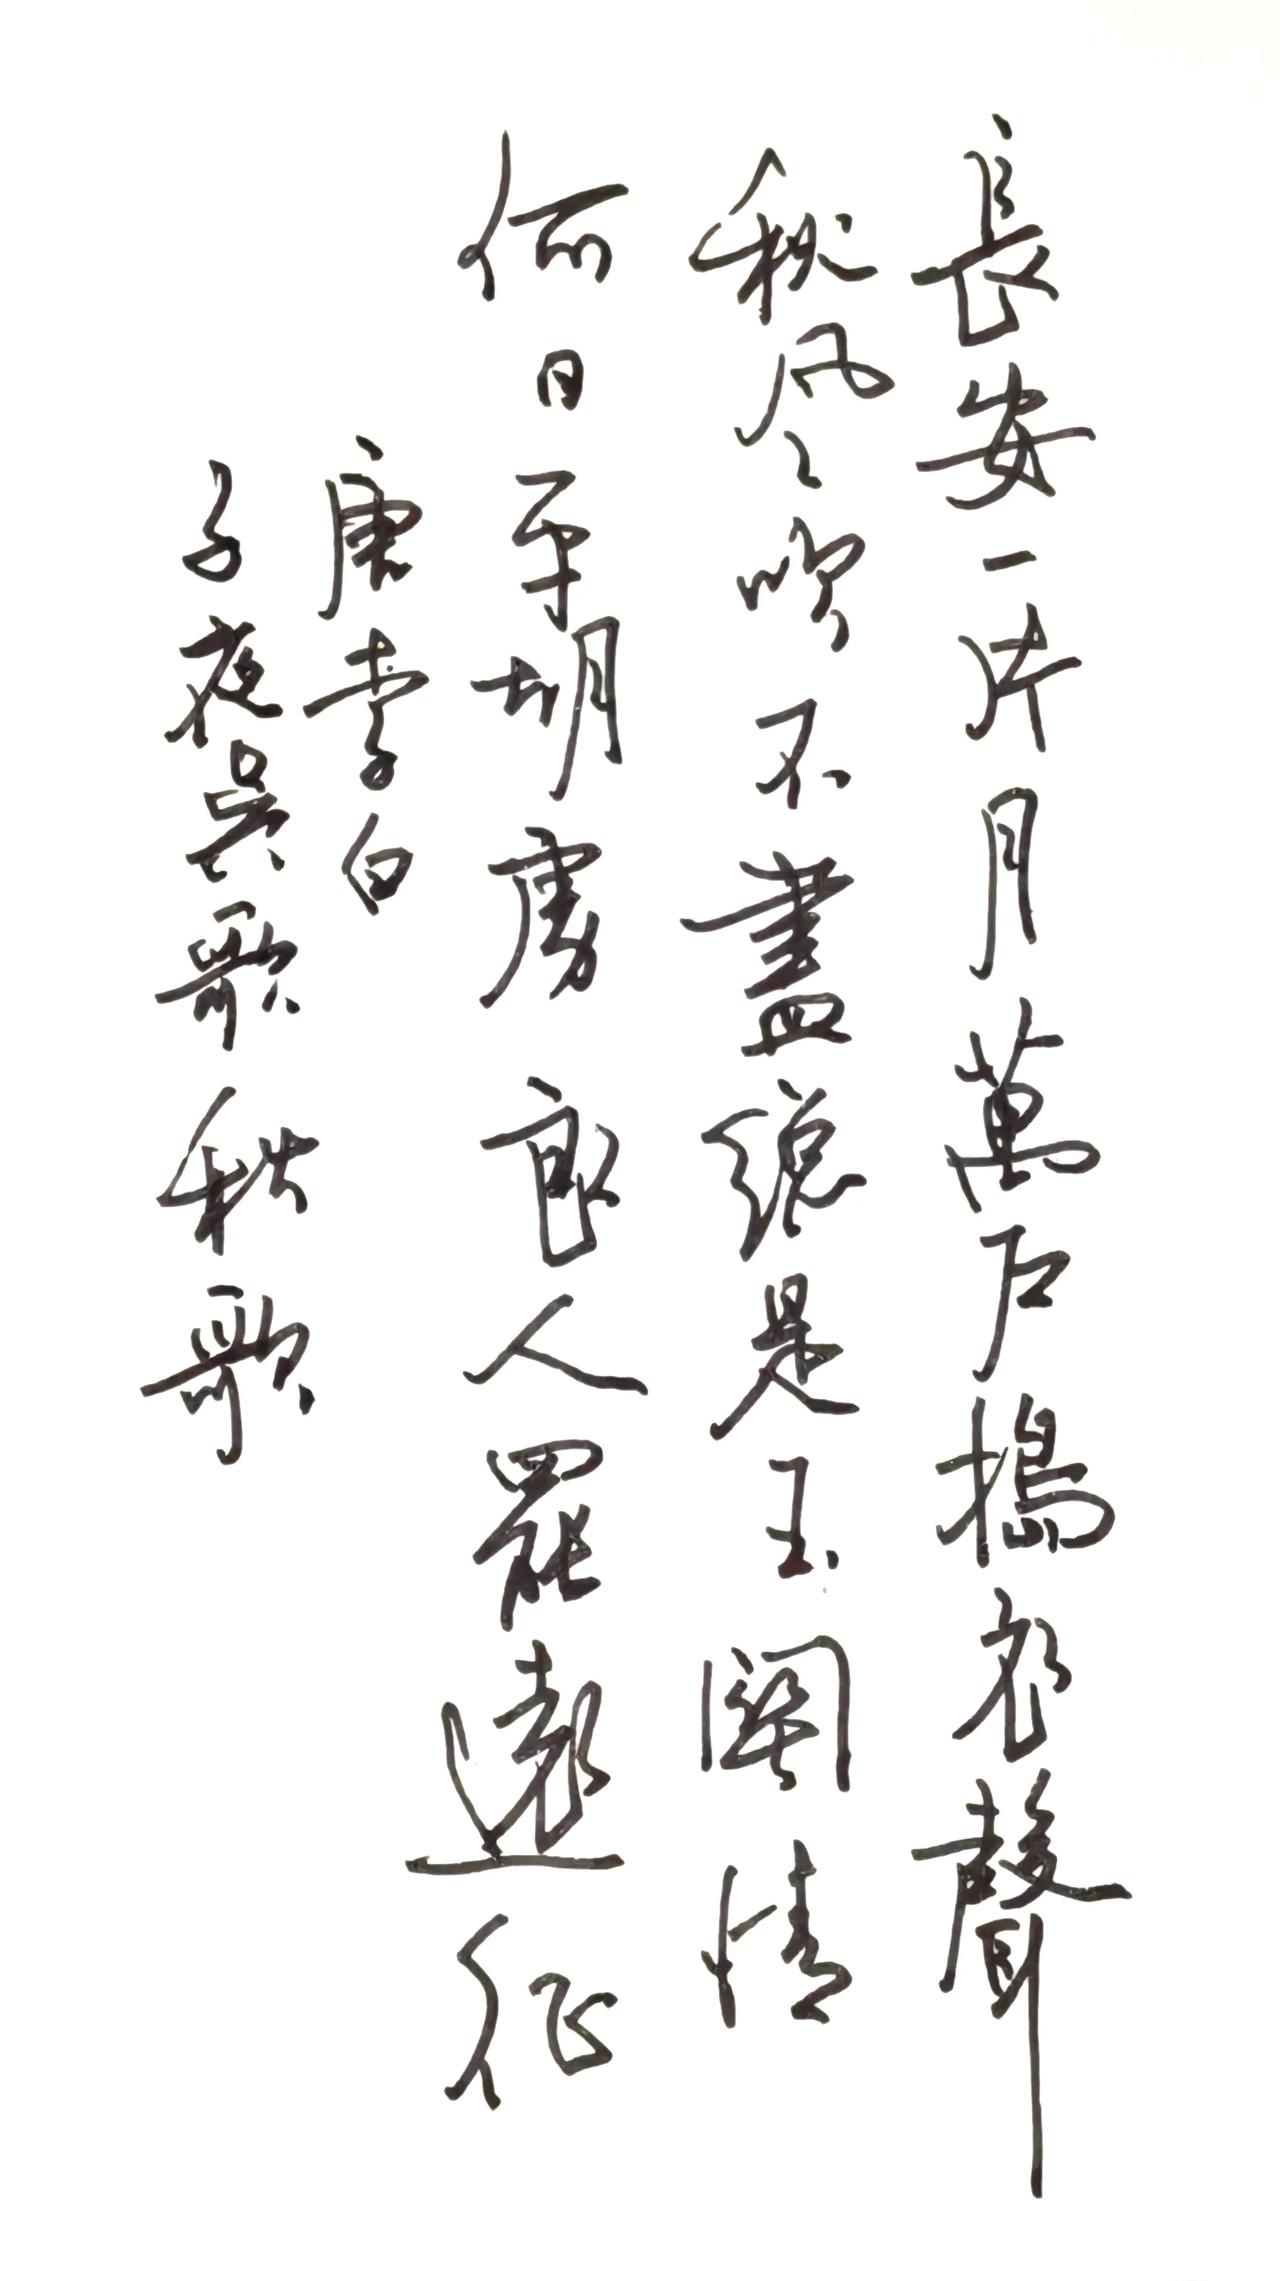 長安一片月萬戶搗衣聲
秋風吹不盡總是玉關情
何日平胡虜良人罷遠征
唐李白
子夜吳歌秋歌